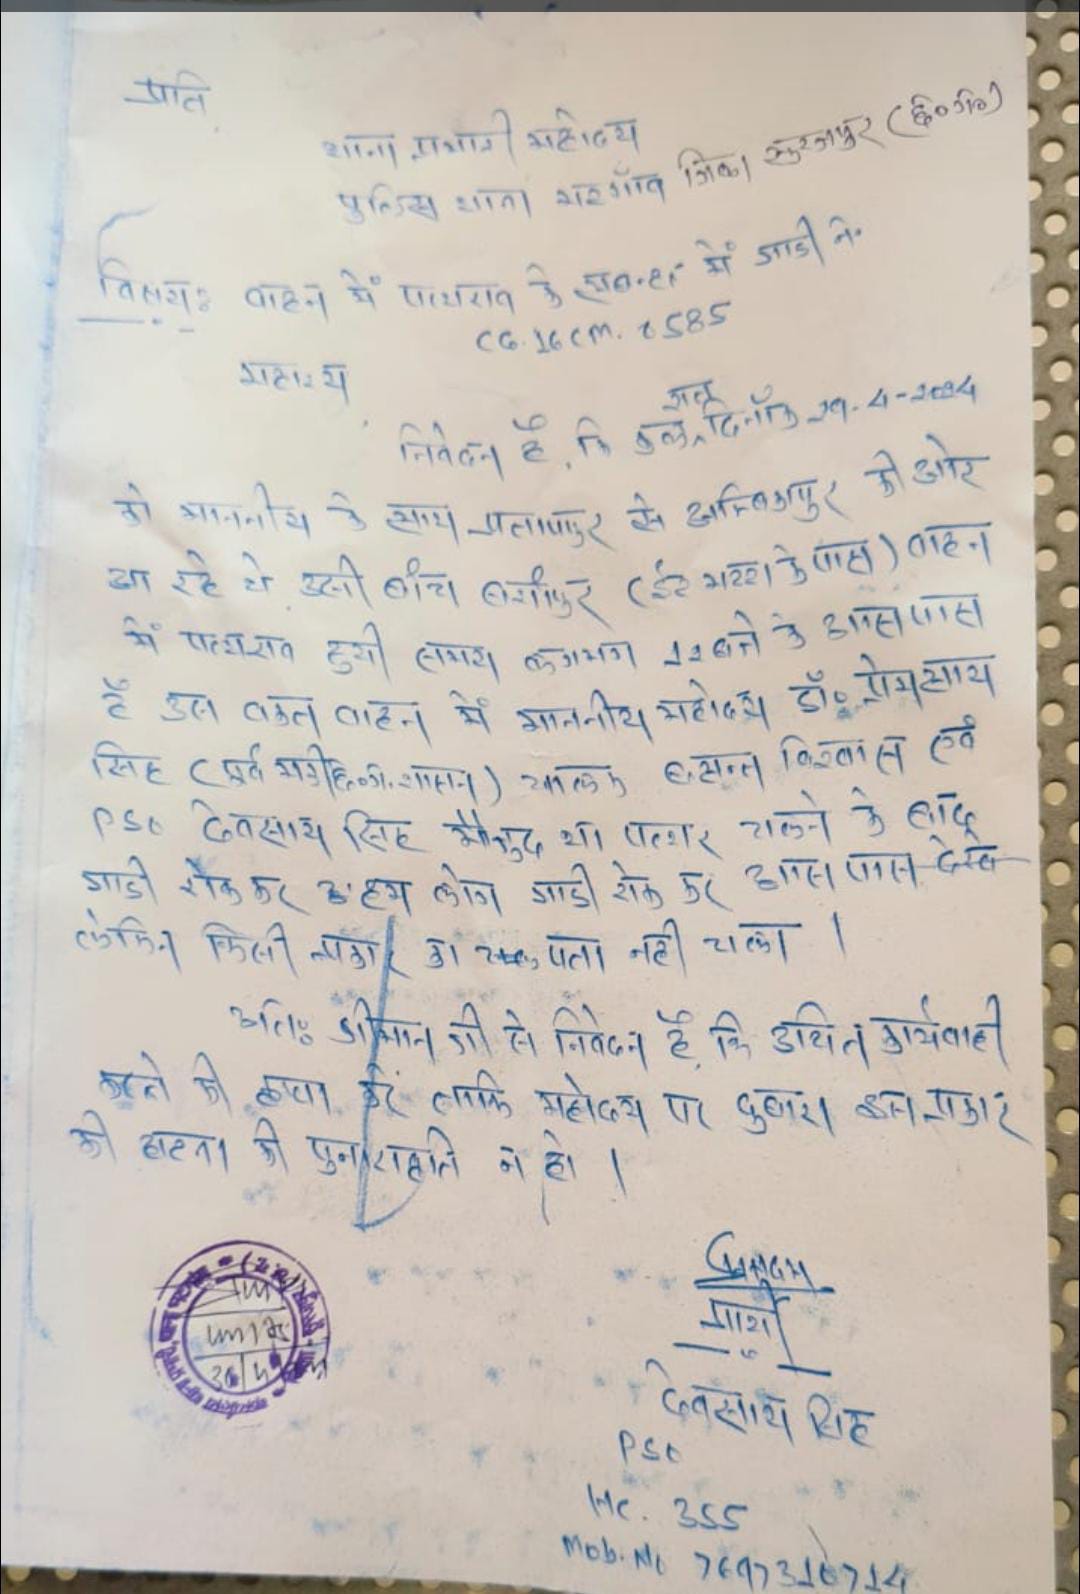 प्रति,
थाना प्रभारी महोदय
पुलिस थाना भटगाँव जिला सुरजपुर (छ०ग०)
विषय: वाहन में पत्थराव के सबन्ध में गाडी नं.
CG.16CM.
महोदय
निवेदन है, कि कल रात्र दिनाँक 29-4-2024
को माननीय के साथ प्रतापपुर से अम्बिकापुर की ओर
आ रहे थे उसी बीच बंशीपुर (ईट भट्टा के पास) वाहन
में पत्थराव हुयी समय लगभग 12 बजे के आसपास
है उस वक्त वाहन में माननीय महोदय डॉ० प्रेमसाय
सिंह (पूर्व मंत्री छ.ग. शासन) चालक बसन्त विश्वास एवं
PSO देवसाय सिंह मौजुद था पत्थर चलने के बाद
गाडी रोक कर हम लोग गाडी रोक कर आस पास देख
लेकिन किसी प्रकार का पता नही चला ।
अतः श्रीमान जी से निवेदन है, कि उचित कार्यवाही
करने की कृपा करें ताकि महोदय पर दुबारा इस प्रकार
की घटना की पुनरावृति न हो ।
प्रार्थी
देवसाय सिंह
PSO
HC. 355
Mob. No 7697316714